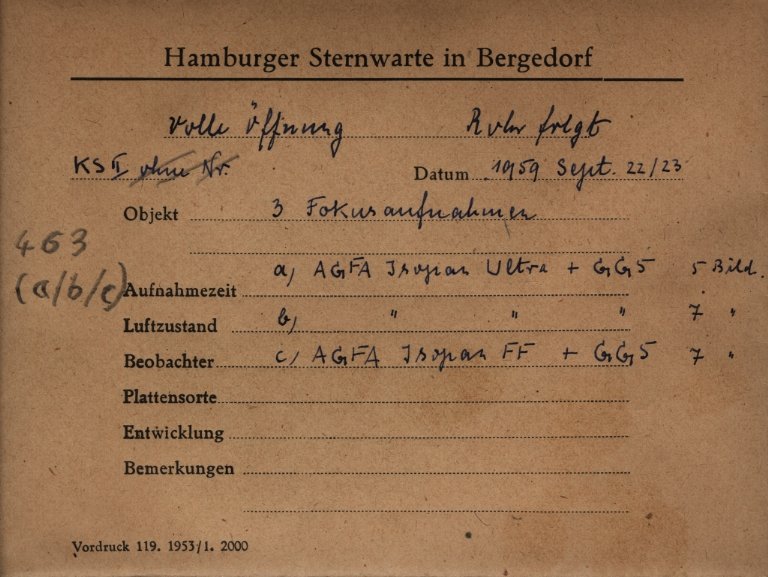 Hamburger Sternwarte in Bergedorf
Volle Öffnung Rohr folgt
KS II ohne Nr. Datum 1959 Sept. 22/23
Objekt 3 Fokusaufnahmen
463
(a/b/c)
a) AGFA Isopan Ultra + GG5 5 Bild.
Aufnahmezeit
Luftzustand b) " " " 7 "
Beobachter c) AGFA Isopan FF + GG5 7 "
Plattensorte
Entwicklung
Bemerkungen
Vordruck 119. 1953/1. 2000